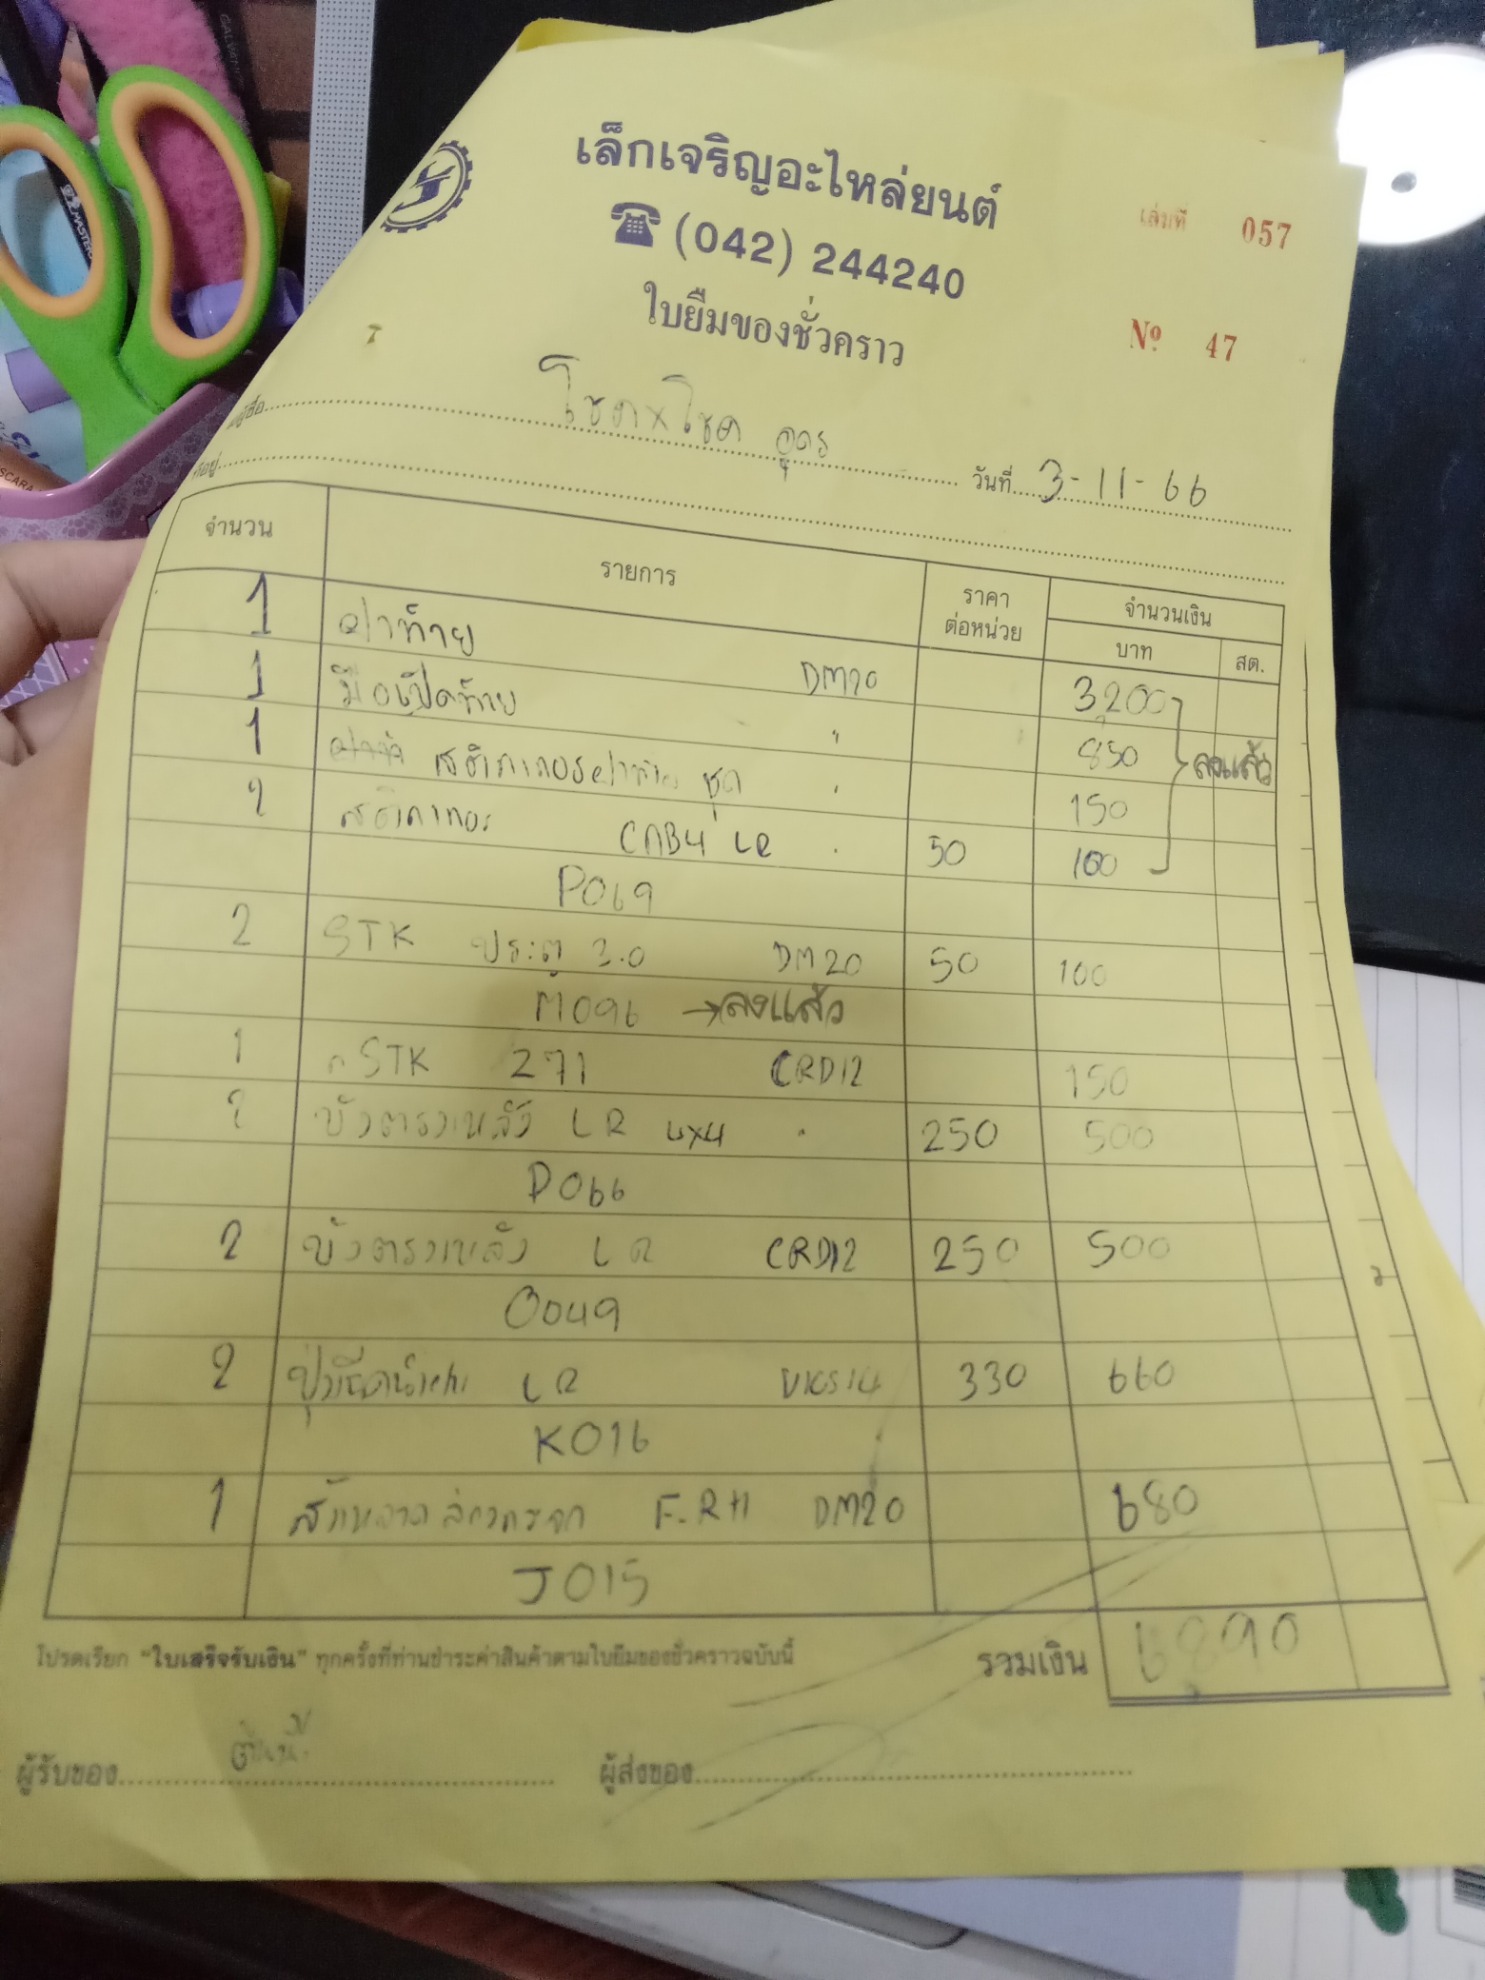 เล็กเจริญอะไหล่ยนต์
เล่มที่ 057
(042) 244240
ใบยืมของชั่วคราว
№ 47
โชคxโชค อุดร
วันที่ 3-11-66
จำนวน รายการ ราคาต่อหน่วย จำนวนเงิน
บาท สต.
1 ฝาท้าย DM20 3,200
1 มือเปิดท้าย " 850 ลงแล้ว
1 สติกเกอร์ฝาท้าย ชุด " 150
2 สติกเกอร์ CAB4 LR " 50 100
P069
2 STK ประตู 3.0 DM20 50 100
M096 →ลงแล้ว
1 STK 271 CRD12 150
2 บังตรงหลัง LR 4x4 " 250 500
D066
2 บังตรงหลัง LR CRD12 250 500
O049
2 LR 330 660
K016
1 สักหลาด F.RH DM20 680
J015
โปรดเรียก "ใบเสร็จรับเงิน" ทุกครั้งที่ท่านชำระค่าสินค้าตามใบยืมของชั่วคราวฉบับนี้
รวมเงิน 6890
ผู้รับของ
ผู้ส่งของ